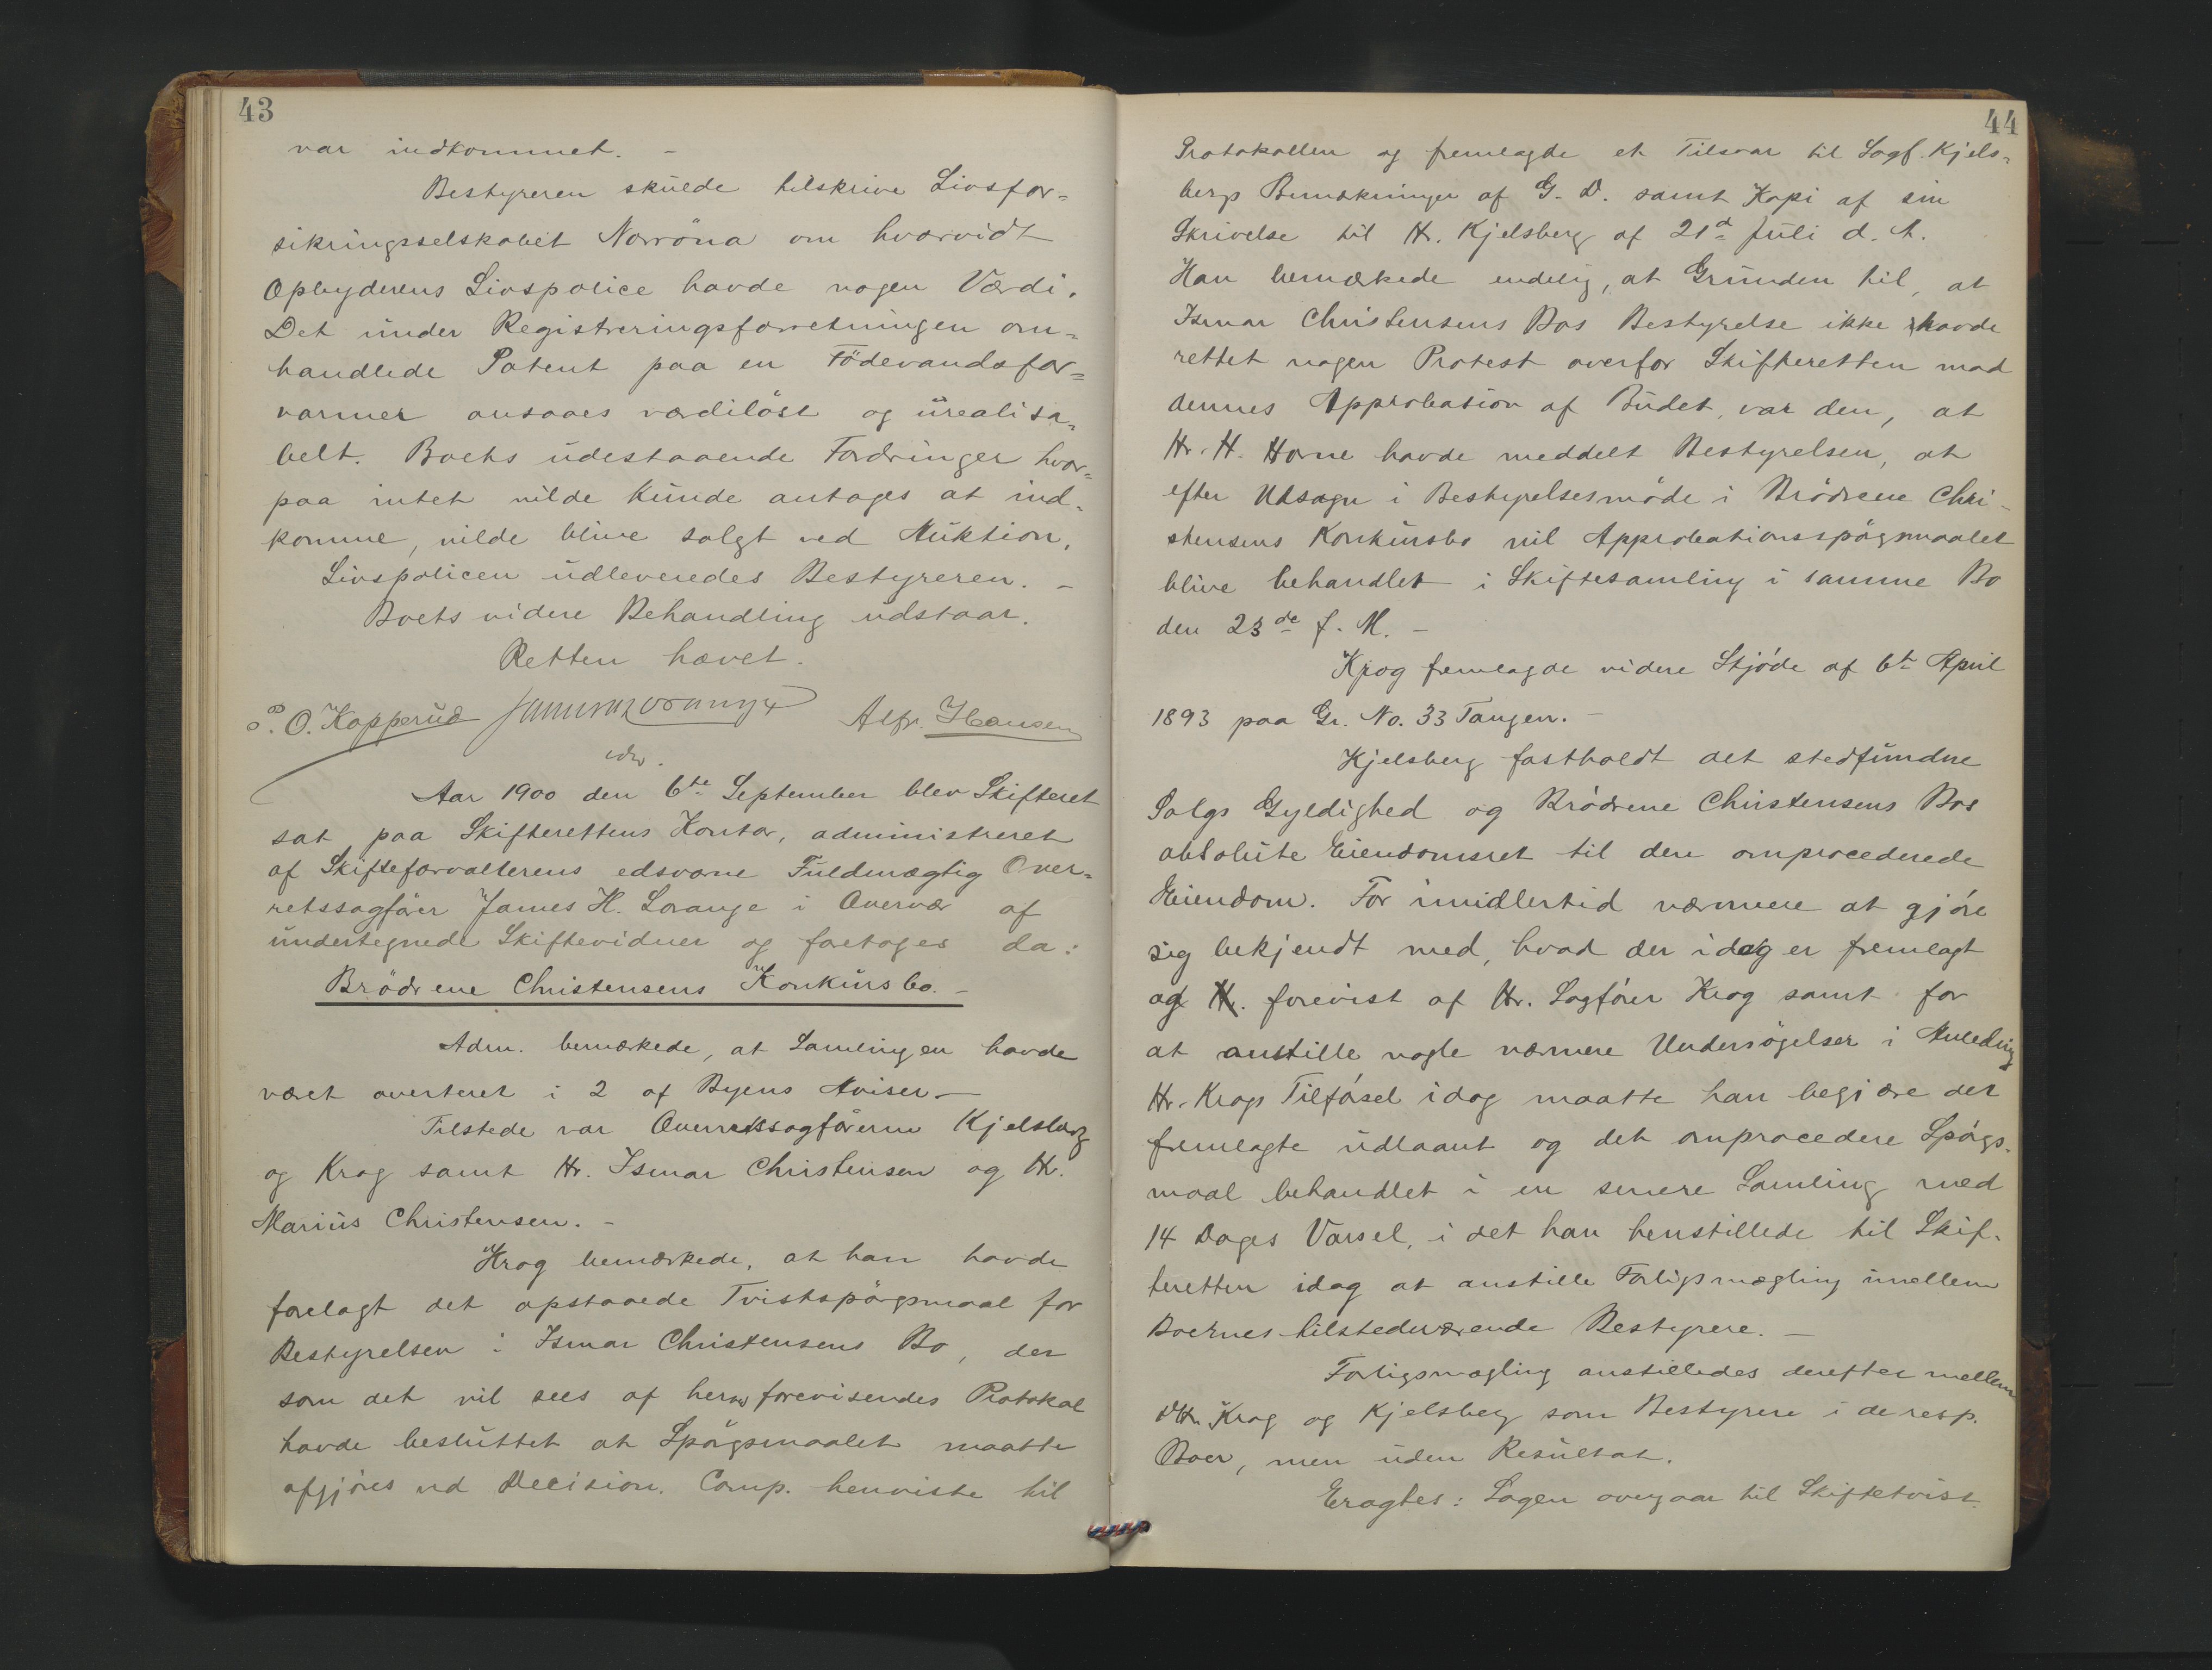 43
var indkommet. –
Bestyreren skulde tilskrive Livsfor=
sikringsselskabet Norröna om hvorvidt
Opbyderens Livspolice havde nogen Værdi.
Det under Registreringsforretningen om=
handlede Patent paa en Födevandsfor=
varmer ansaaes værdilöst og urealisa=
belt. Boets udestaaende Fordringer hvor=
paa intet vilde kunde antages at ind=
komme, vilde blive solgt ved Auktion.
Livspolicen udleveredes Bestyreren. –
Boets videre Behandling udstaar.
Retten hævet.
O. Kopperud Alfr. Hansen
Aar 1900 den 6te September blev Skifteret
sat paa Skifterettens Kontor, administreret
af Skifteforvalterens edsvorne Fuldmægtig Over=
retssagförer James H. Lorange i Overvær af
undertegnede Skiftevidner og foretoges da:
Brödrene Christensens Konkursbo. –
Adm. bemærkede, at Samlingen havde
været averteret i 2 af Byens Aviser. –
Tilstede var Overretssagförerne Kjelsberg
og Krog samt Hr. Ismar Christensen og Hr.
Marius Christensen. –
Krog bemærkede, at han havde
forelagt det opstaaede Tvistspörgsmaal for
Bestyrelsen i Ismar Christensens Bo, der
som det vil sees af herved forevisendes Protokol
havde besluttet at Spörgsmaalet maatte
afgjöres ved Decision. Comp. henviste til
44
Protokollen og fremlagde et Tilsvar til Sagf. Kjels=
bergs Bemærkninger af G. D. samt Kopi af sin
Skrivelse til Hr. Kjelsberg af 21d Juli d. A.
Han bemærkede endelig, at Grunden til, at
Ismar Christensens Bos Bestyrelse ikke havde
rettet nogen Protest overfor Skifteretten mod
dennes Approbation af Budet, var den, at
Hr. H. Horne havde meddelt Bestyrelsen, at
efter Udsagn i Bestyrelsesmöde i Brödrene Chri-
stensens Konkursbo vil Approbationsspörgsmaalet
blive behandlet i Skiftesamling i samme Bo
den 23de f. M. –
Krog fremlagde videre Skjöde af 6te April
1893 paa Gr. No. 33 Tangen. –
Kjelsberg fastholdt det stedfundne
Salgs Gyldighed og Brödrene Christensens Bos
absolute Eiendomsret til den omprocederede
Eiendom. For imidlertid nærmere at gjöre
sig bekjendt med, hvad der idag er fremlagt
og forevist af Hr. Sagförer Krog samt for
at anstille nogle nærmere Undersögelser i Anledning
Hr. Krogs Tilförsel idag maatte han begjære det
fremlagte udlaant og det omprocedere Spörgs=
maal behandlet i en senere Samling med
14 Dages Varsel, i det han henstillede til Skif=
teretten idag at anstille Forligsmægling imellem
Boernes tilstedeværende Bestyrere. –
Forligsmægling anstilledes derefter mellem
Dhr. Krog og Kjelsberg som Bestyrere i de resp.
Boer, men uden Resultat.
Eragtes: Sagen overgaar til Skiftetvist.